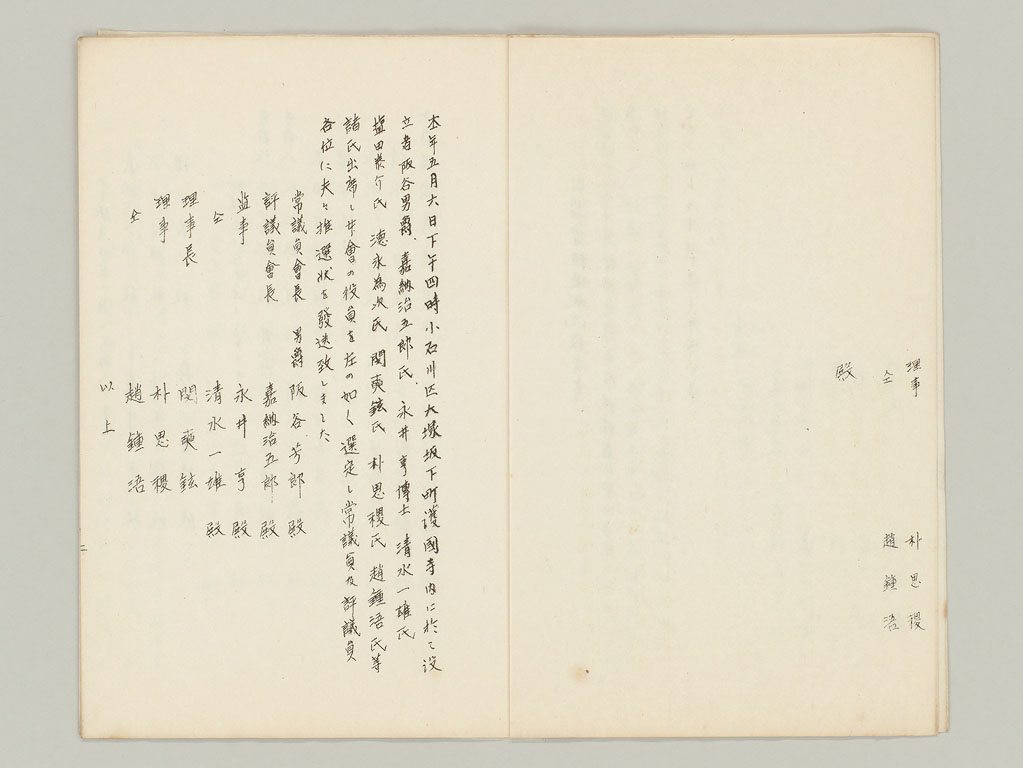 理事 朴思稷
仝 趙鍾浯
殿
本年五月六日下午四時小石川区大塚坂下町護國寺内に於て設
立者阪谷男爵、嘉納治五郎氏、永井亨博士、清水一雄氏
塩田泰介氏 徳永為次氏 閔奭鉉氏 朴思稷氏 趙鍾浯氏等
諸氏出席し本會の役員を左の如く選定し常議員及評議員
各位に夫々推選状を發送致しました
常議員會長 男爵 阪谷芳郎 殿
評議員會長 嘉納治五郎 殿
監事 永井亨 殿
仝 清水一雄 殿
理事長 閔奭鉉
理事 朴思稷
仝 趙鍾浯
以上
二